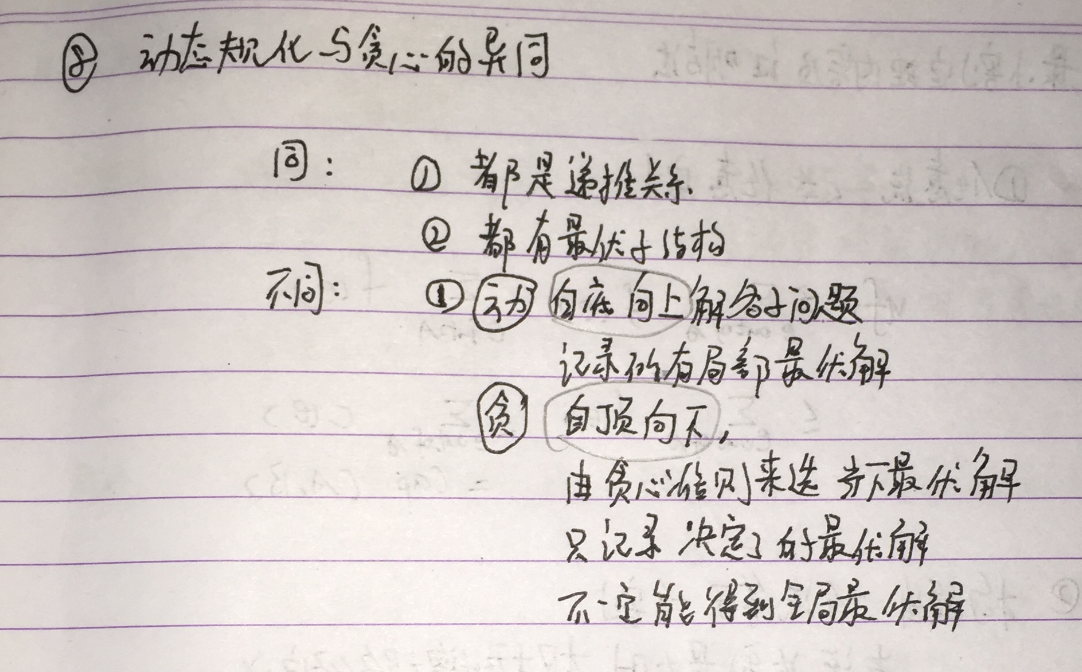 ⑧ 动态规化与贪心的异同
同： ① 都是递推关系.
② 都有最优子结构
不同： ① 动 自底向上解各子问题
记录所有局部最优解
贪 自顶向下，
由贪心准则来选当下最优解
只记录决定了的最优解
不一定能得到全局最优解.